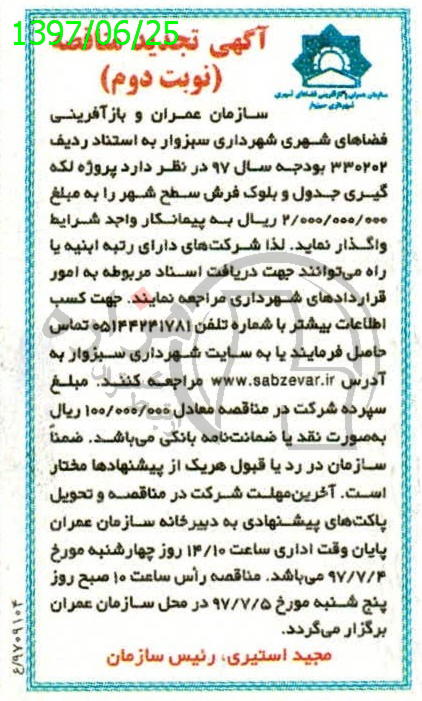 1397/06/25
آگهی تجدید مناقصه
(نوبت دوم)
سازمان عمران و بازآفرینی فضاهای شهری
شهرداری سبزوار
سازمان عمران و بازآفرینی
فضاهای شهری شهرداری سبزوار به استناد ردیف
۳۳۰۲۰۲ بودجه سال ۹۷ در نظر دارد پروژه لکه
گیری جدول و بلوک فرش سطح شهر را به مبلغ
۲/۰۰۰/۰۰۰/۰۰۰ ریال به پیمانکار واجد شرایط
واگذار نماید. لذا شرکت‌های دارای رتبه ابنیه یا
راه می‌توانند جهت دریافت اسناد مربوطه به امور
قراردادهای شهرداری مراجعه نمایند. جهت کسب
اطلاعات بیشتر با شماره تلفن ۰۵۱۴۴۲۴۱۷۸۱ تماس
حاصل فرمایند یا به سایت شهرداری سبزوار به
آدرس www.sabzevar.ir مراجعه کنند. مبلغ
سپرده شرکت در مناقصه معادل ۱۰۰/۰۰۰/۰۰۰ ریال
به‌صورت نقد یا ضمانت‌نامه بانکی می‌باشد. ضمناً
سازمان در رد یا قبول هریک از پیشنهادها مختار
است. آخرین‌مهلت شرکت در مناقصه و تحویل
پاکت‌های پیشنهادی به دبیرخانه سازمان عمران
پایان وقت اداری ساعت ۱۴/۱۰ روز چهارشنبه مورخ
۹۷/۷/۴ می‌باشد. مناقصه رأس ساعت ۱۰ صبح روز
پنج شنبه مورخ ۹۷/۷/۵ در محل سازمان عمران
برگزار می‌گردد.
مجید استیری، رئیس سازمان
۹۷۰۹۱۰۴/ع